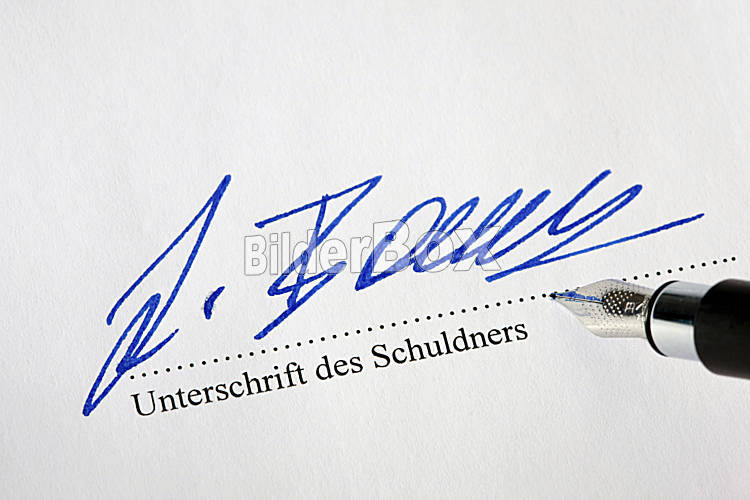 BilderBOX
Unterschrift des Schuldners